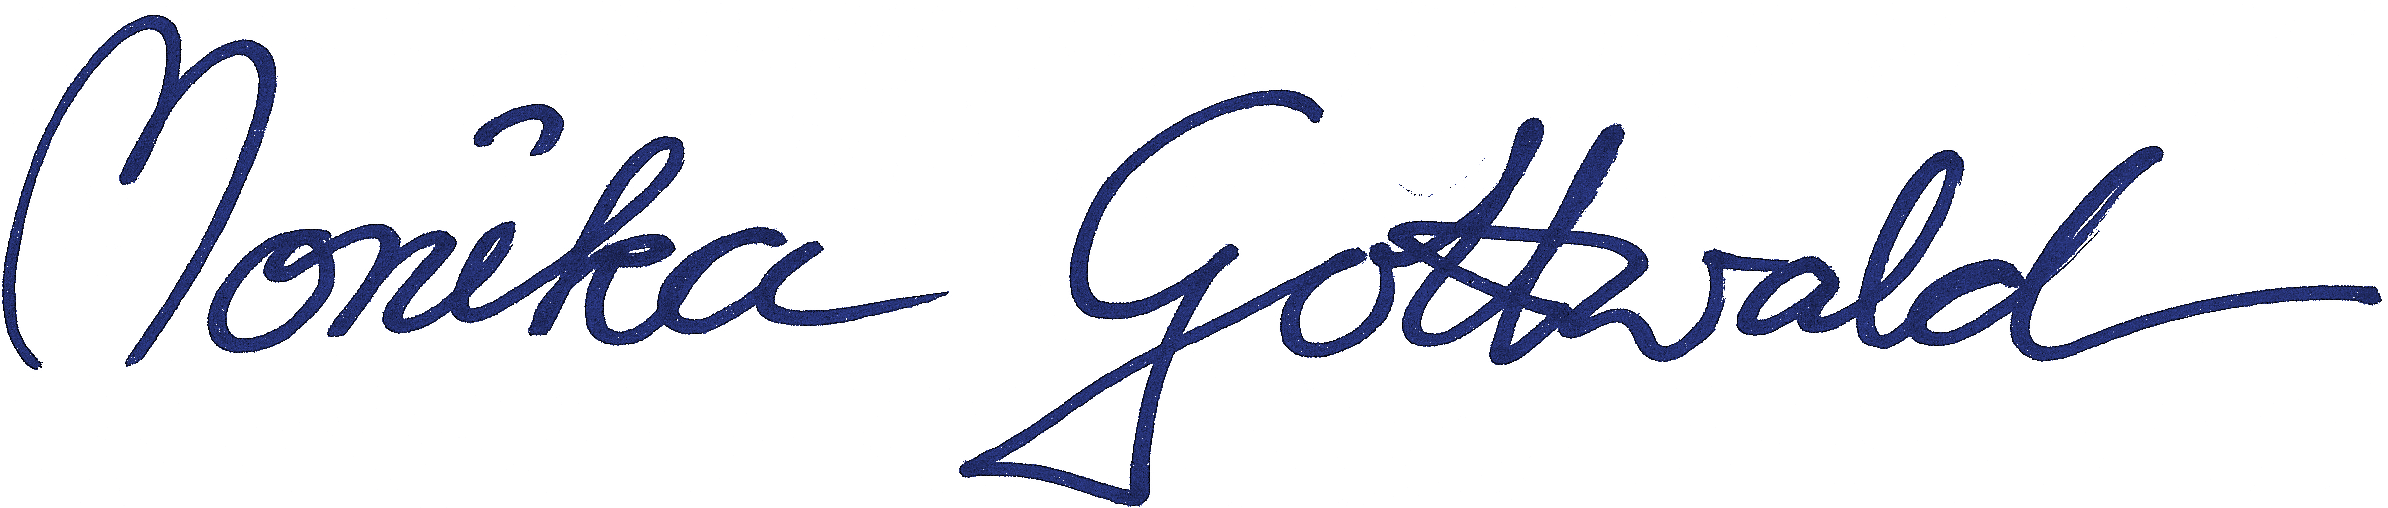 Monika Gottwald